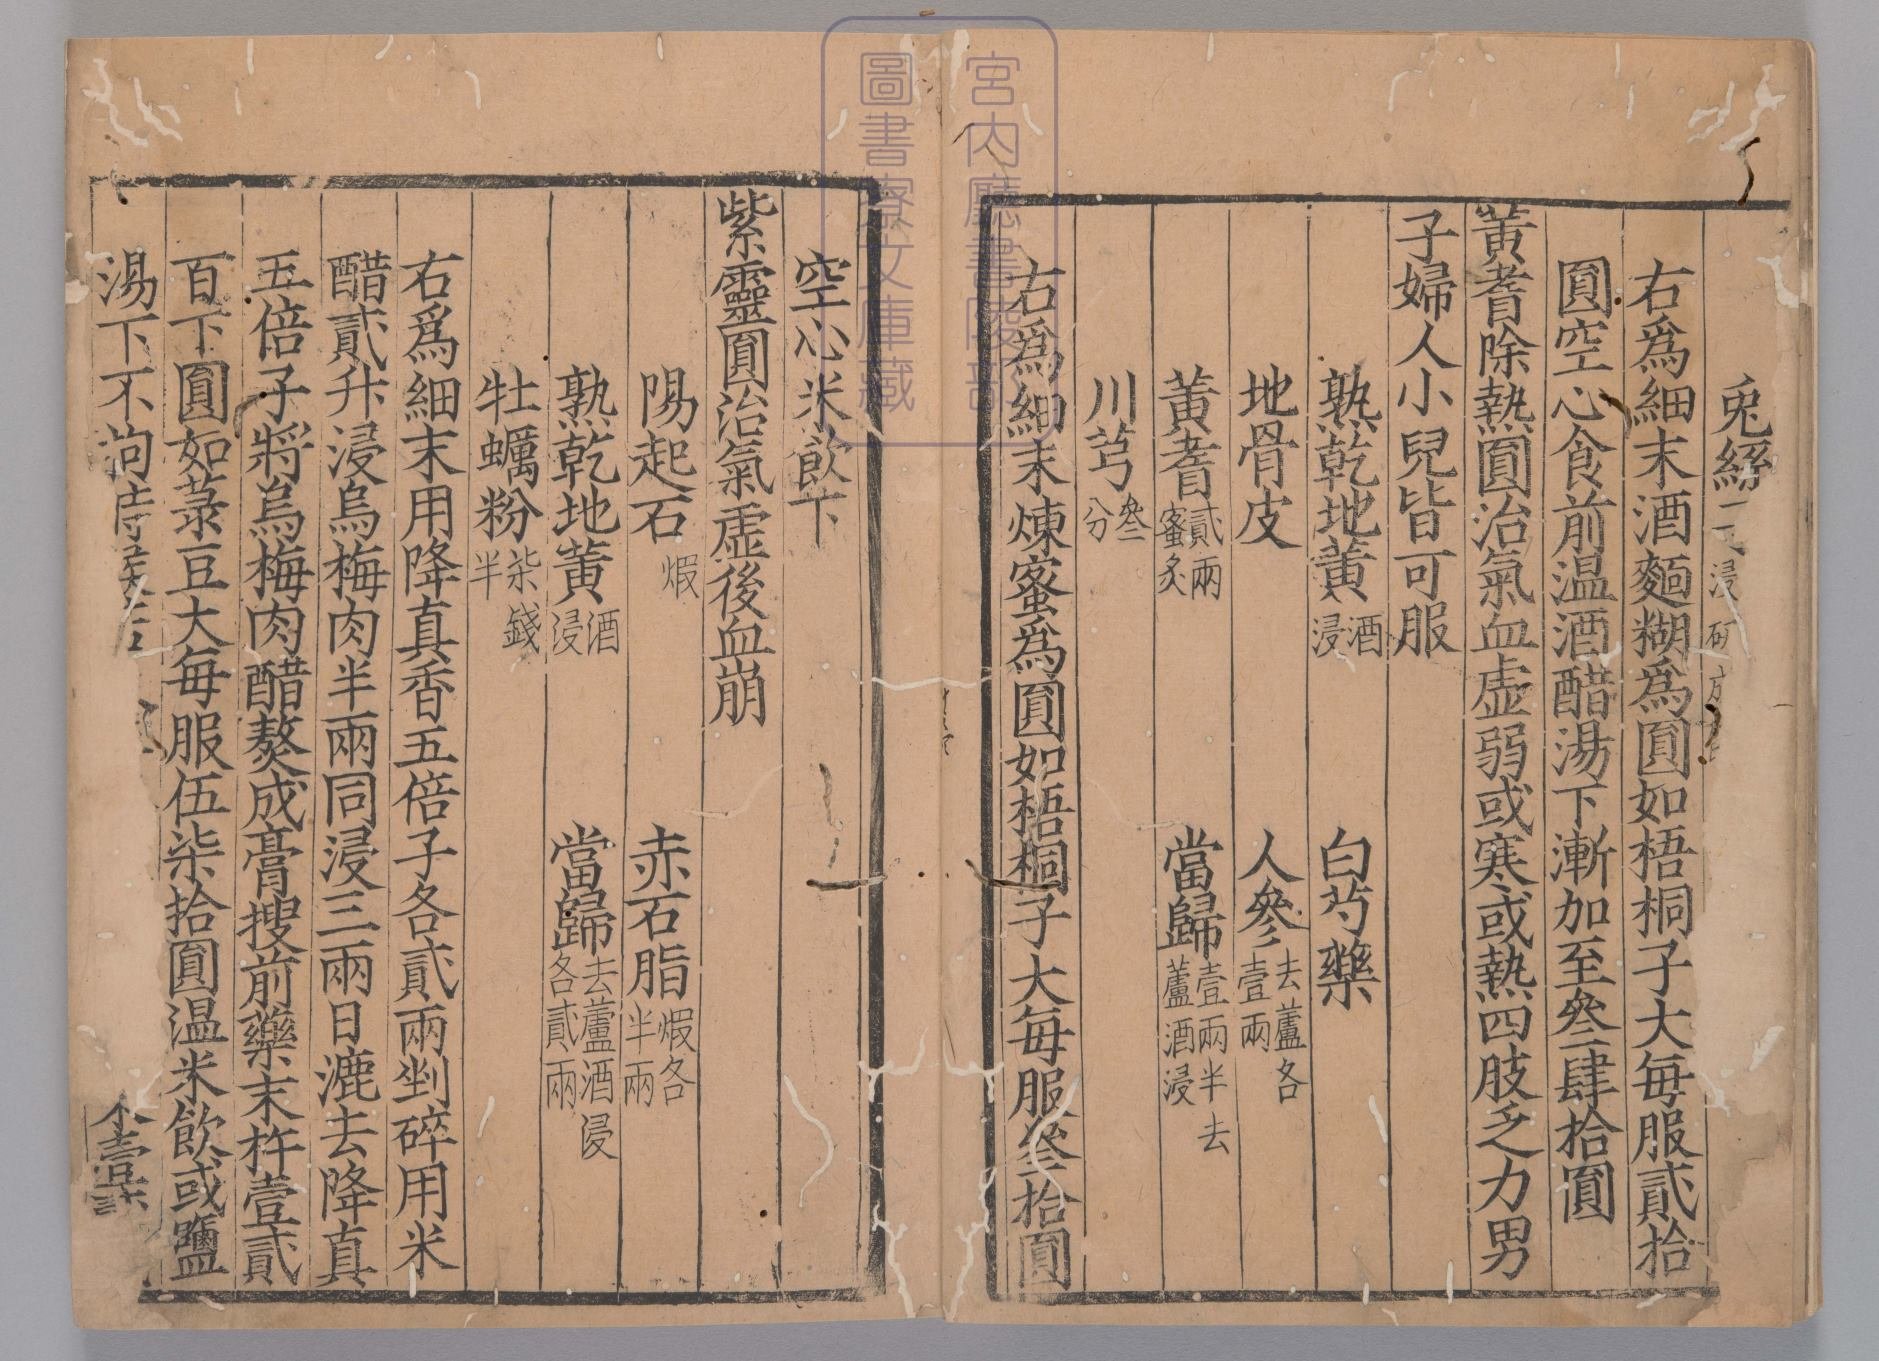 兎絲
浸研
右爲細末酒麵糊爲圓如梧桐子大每服貳拾
圓空心食前温酒醋湯下漸加至叄肆拾圓
黃耆除熱圓治氣血虛弱或寒或熱四肢乏力男
子婦人小兒皆可服
熟乾地黃酒浸 白芍藥
地骨皮 人參去蘆各壹兩
黃耆貳兩蜜炙 當歸壹兩半去蘆酒浸
川芎叄分
右爲細末煉蜜爲圓如梧桐子大每服叄拾圓
空心米飲下
紫靈圓治氣虛後血崩
陽起石煆 赤石脂煆各半兩
熟乾地黃酒浸 當歸去蘆酒浸各貳兩
牡蠣粉柒錢半
右爲細末用降真香五倍子各貳兩剉碎用米
醋貳升浸烏梅肉半兩同浸三兩日漉去降真
五倍子將烏梅肉醋熬成膏搜前藥末杵壹貳
百下圓如菉豆大每服伍柒拾圓温米飲或鹽
湯下不拘時候
宮内廳書陵部
圖書寮文庫藏